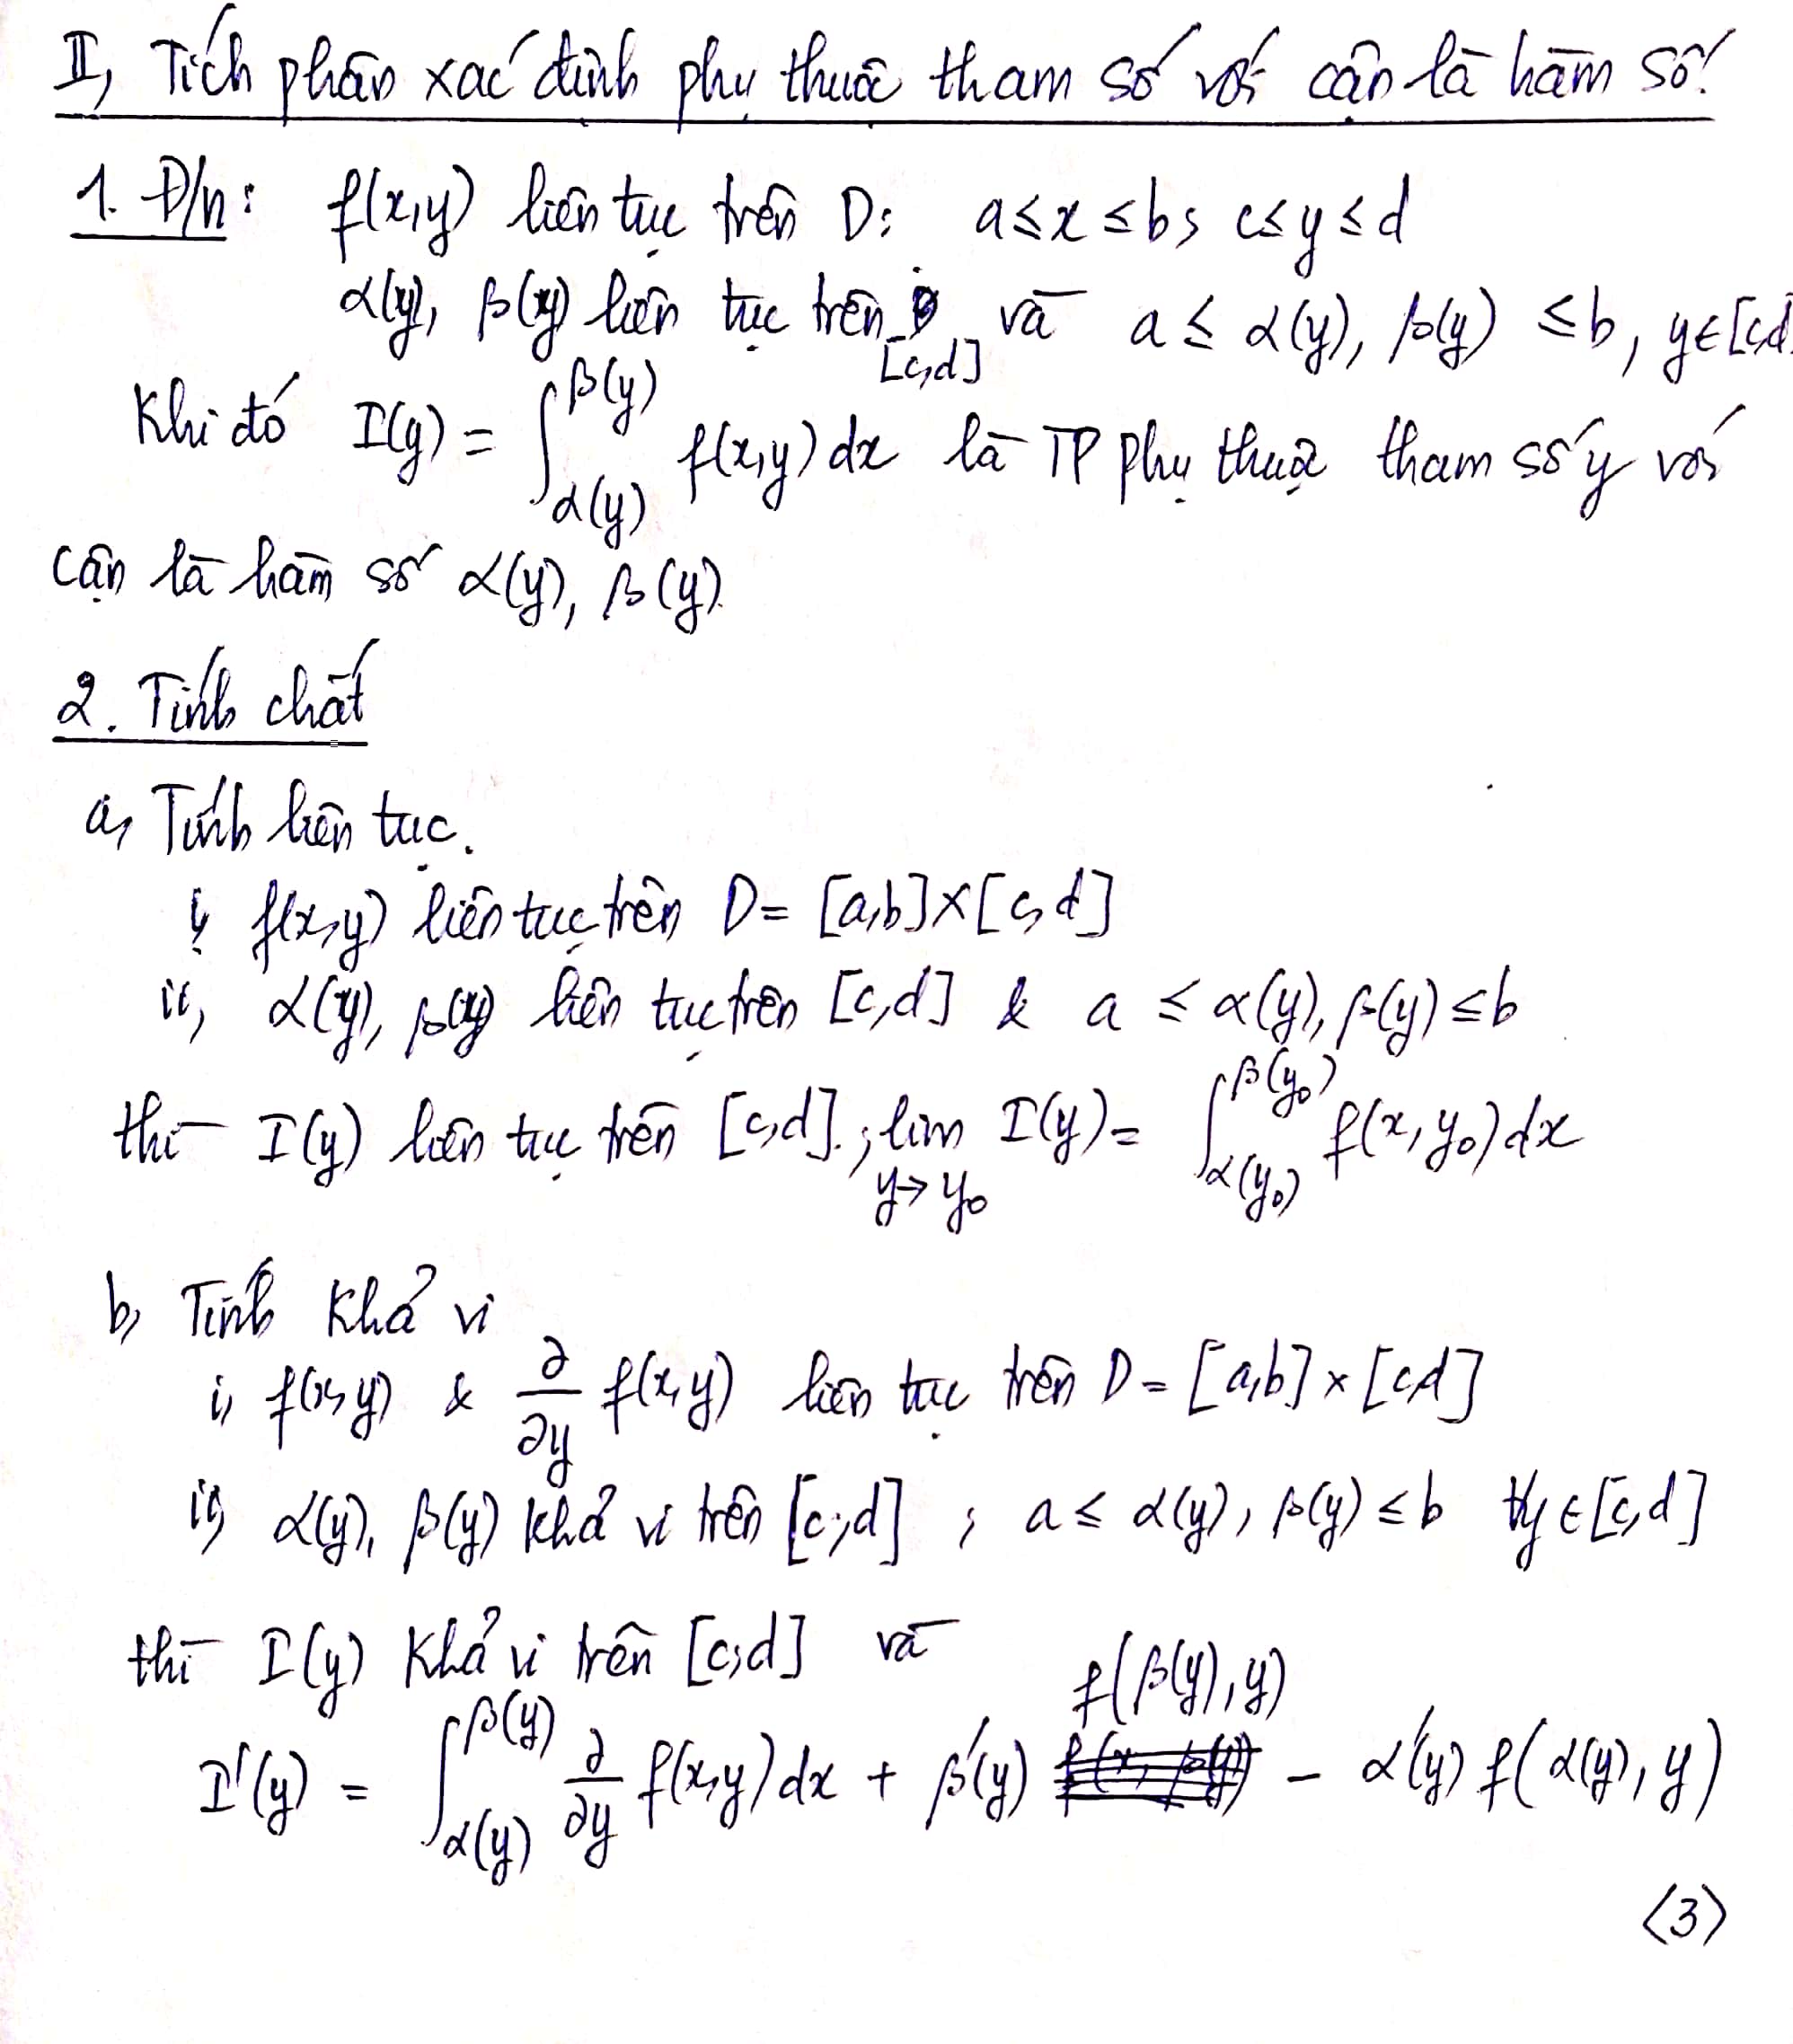 II, Tích phân xác định phụ thuộc tham số với cận là hàm số.
1. Đ/n: f(x,y) liên tục trên D: a ≤ x ≤ b; c ≤ y ≤ d
α(y), β(y) liên tục trên [c,d] và a ≤ α(y), β(y) ≤ b, y ∈ [c,d]
Khi đó I(y) = ∫_{α(y)}^{β(y)} f(x,y) dx là TP phụ thuộc tham số y với
cận là hàm số α(y), β(y).
2. Tính chất
a, Tính liên tục.
i, f(x,y) liên tục trên D = [a,b] × [c,d]
ii, α(y), β(y) liên tục trên [c,d] & a ≤ α(y), β(y) ≤ b
thì I(y) liên tục trên [c,d]; lim_{y→y₀} I(y) = ∫_{α(y₀)}^{β(y₀)} f(x,y₀) dx
b, Tính khả vi
i, f(x,y) & ∂/∂y f(x,y) liên tục trên D = [a,b] × [c,d]
ii, α(y), β(y) khả vi trên [c;d] ; a ≤ α(y), β(y) ≤ b ∀y ∈ [c,d]
thì I(y) khả vi trên [c;d] và
I'(y) = ∫_{α(y)}^{β(y)} ∂/∂y f(x,y) dx + β'(y) f(β(y),y) - α'(y) f(α(y),y)
<3>